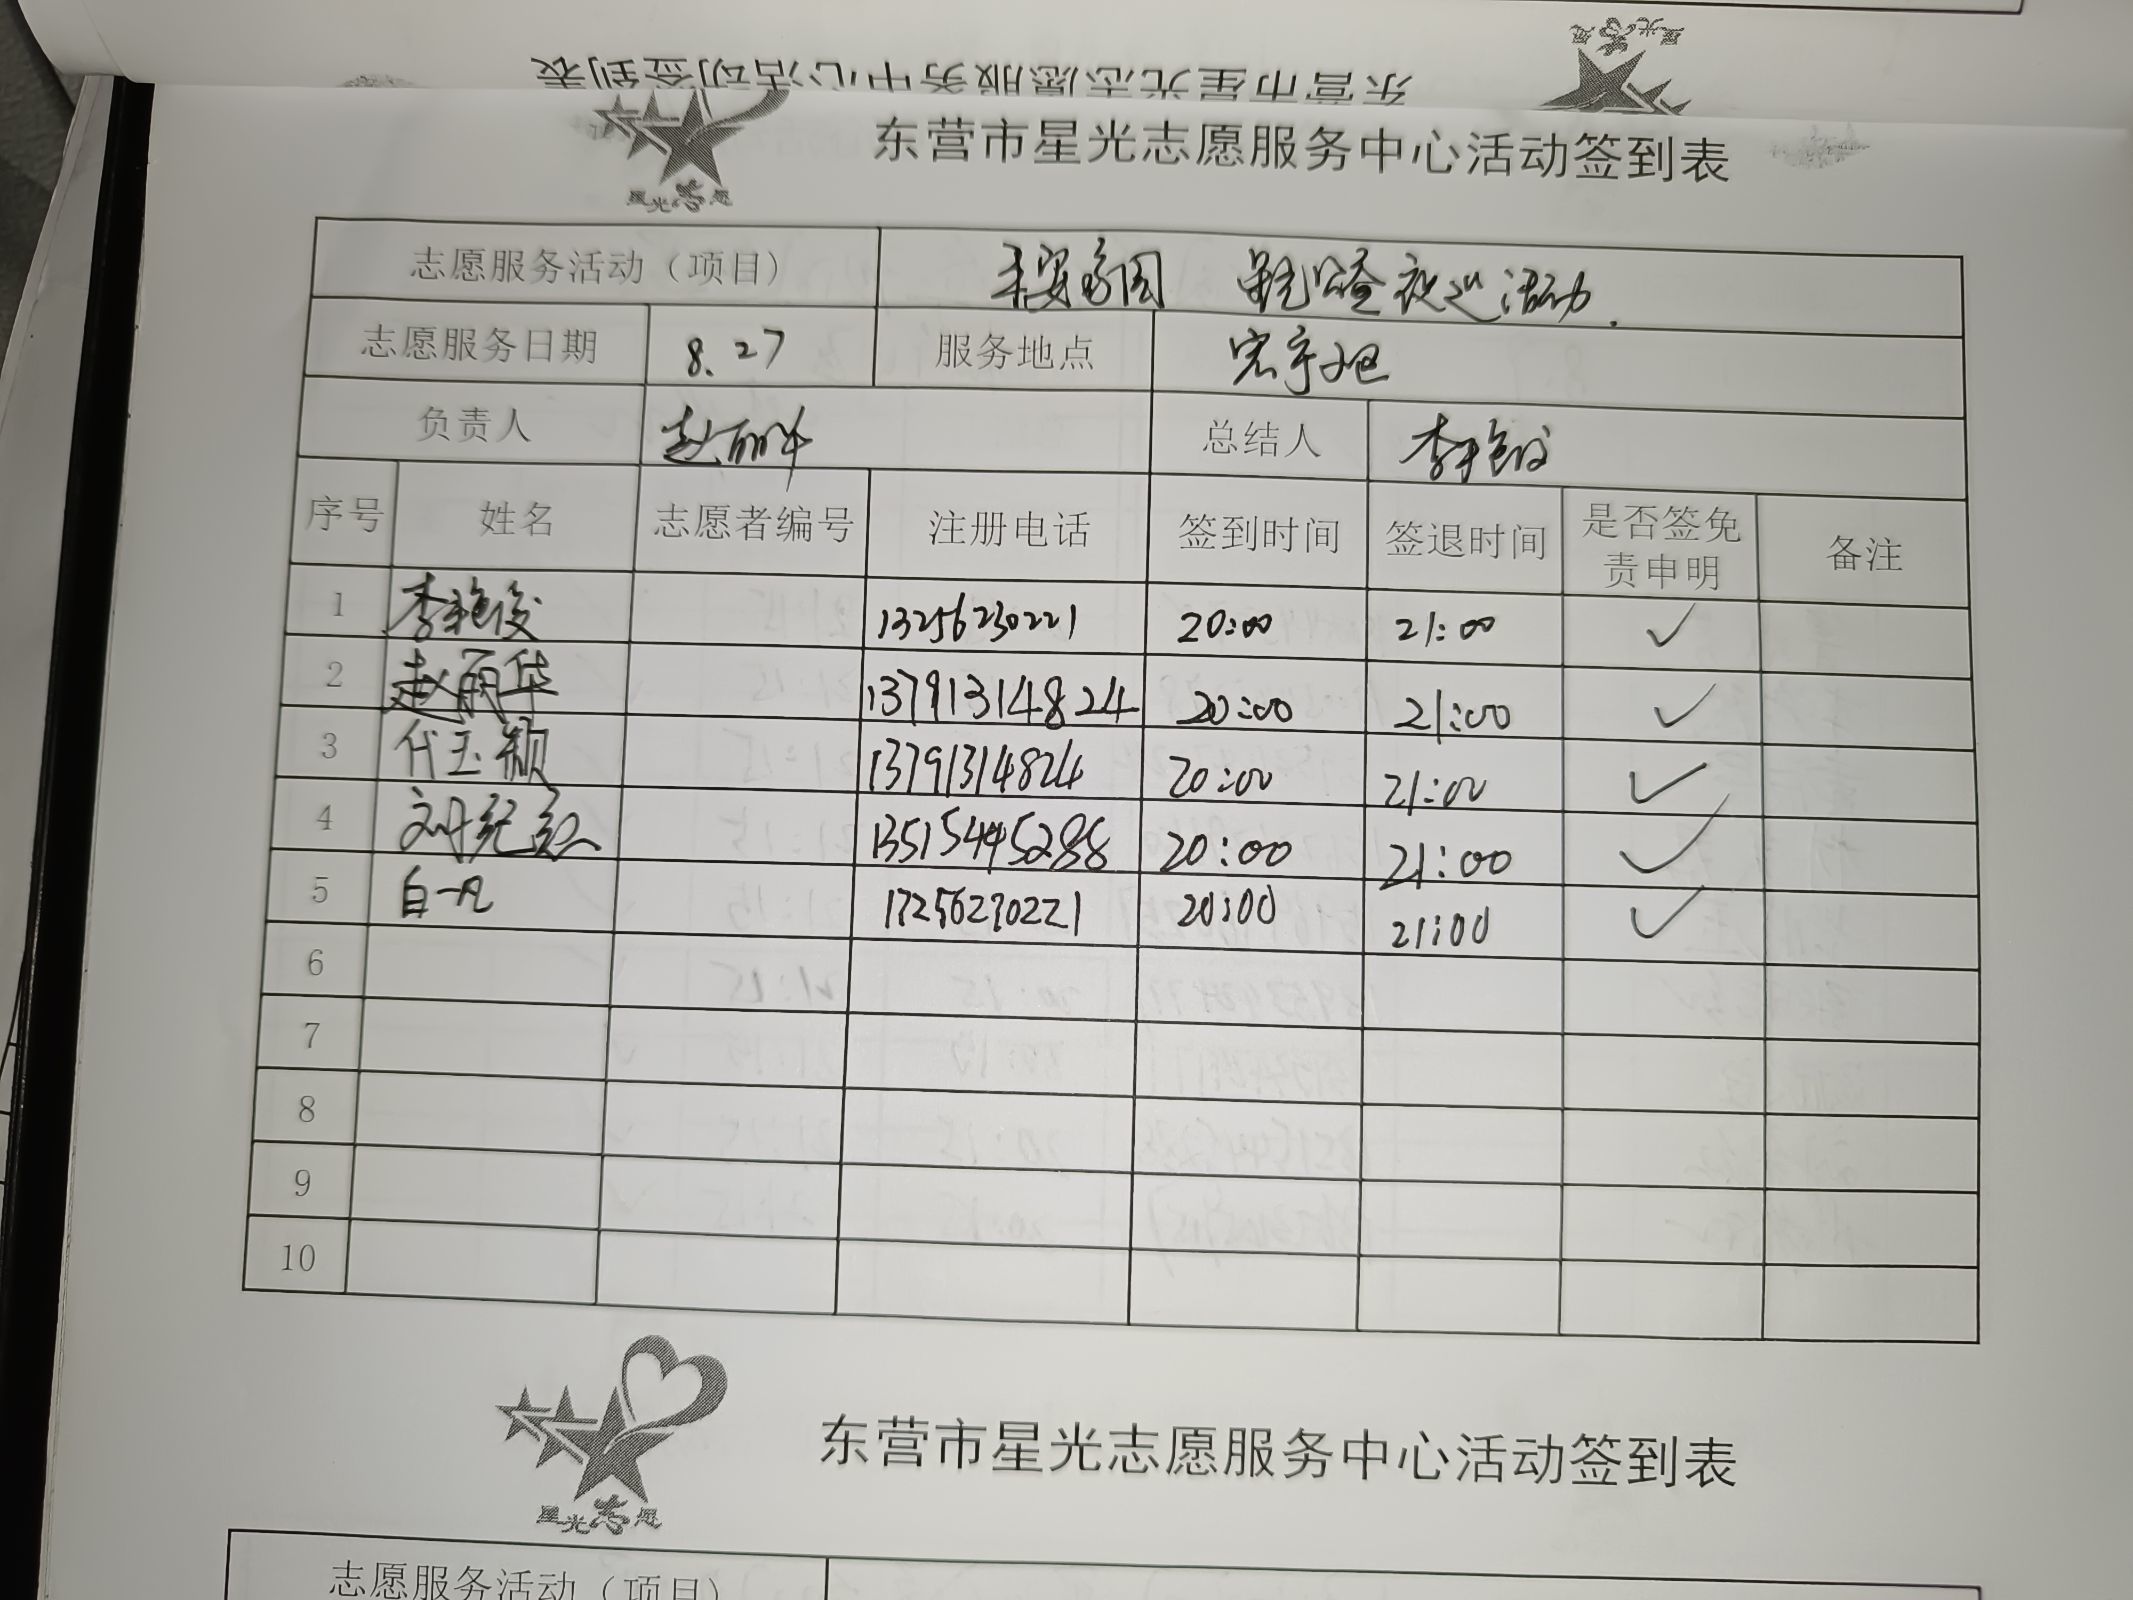 东营市星光志愿服务中心活动签到表
星光志愿
东营市星光志愿服务中心活动签到表
星光志愿
志愿服务活动（项目） 平安家园 夜巡活动.
志愿服务日期 8.27 服务地点 宏宇
负责人 赵丽华 总结人 李艳
序号 姓名 志愿者编号 注册电话 签到时间 签退时间 是否签免责申明 备注
1 李艳俊 13256230221 20:00 21:00 ✓
2 赵丽华 13791314824 20:00 21:00 ✓
3 代玉颖 13791314824 20:00 21:00 ✓
4 13515445288 20:00 21:00 ✓
5 白一凡 20:00 21:00 ✓
6
7
8
9
10
星光志愿
东营市星光志愿服务中心活动签到表
志愿服务活动（项目）